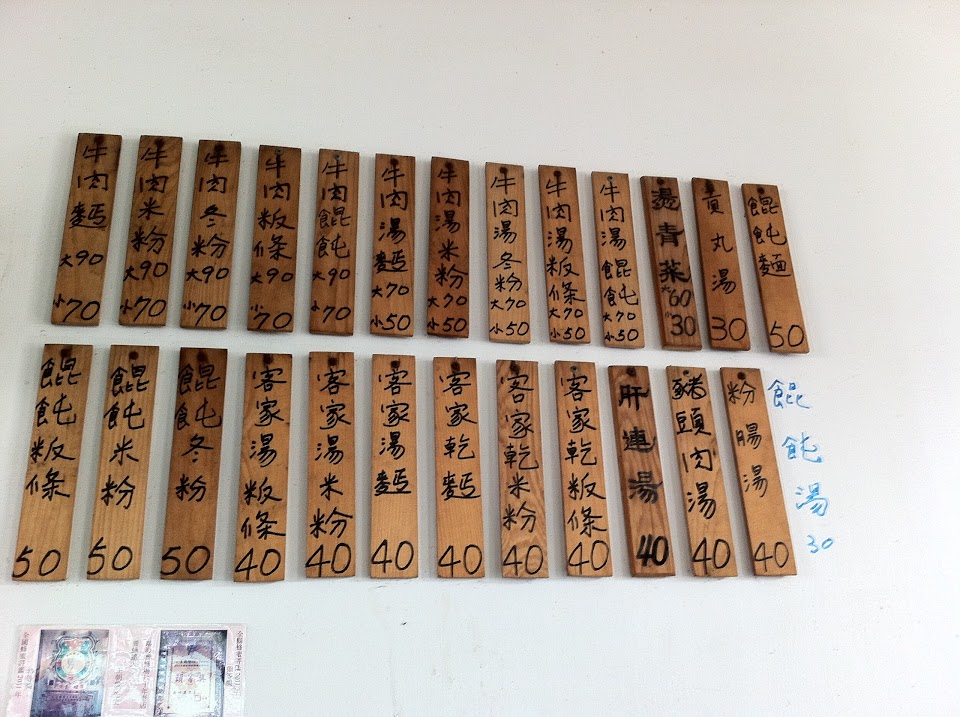 牛肉麵 大90 小70
牛肉米粉 大90 小70
牛肉冬粉 大90 小70
牛肉粄條 大90 小70
牛肉餛飩 大90 小70
牛肉湯麵 大70 小50
牛肉湯米粉 大70 小50
牛肉湯冬粉 大70 小50
牛肉湯粄條 大70 小50
牛肉湯餛飩 大70 小50
燙青菜 大60 小30
貢丸湯 30
餛飩麵 50
餛飩粄條 50
餛飩米粉 50
餛飩冬粉 50
客家湯粄條 40
客家湯米粉 40
客家湯麵 40
客家乾麵 40
客家乾米粉 40
客家乾粄條 40
肝連湯 40
豬頭肉湯 40
粉腸湯 40
餛飩湯 30